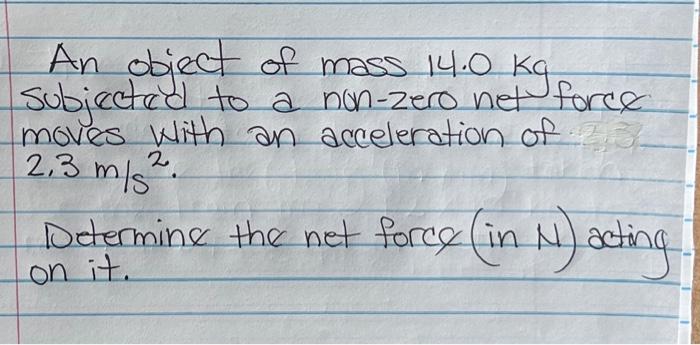 An object of mass 14.0 kg
subjected to a non-zero net force
moves with an acceleration of
2.3 m/s².
Determine the net force (in N) acting
on it.